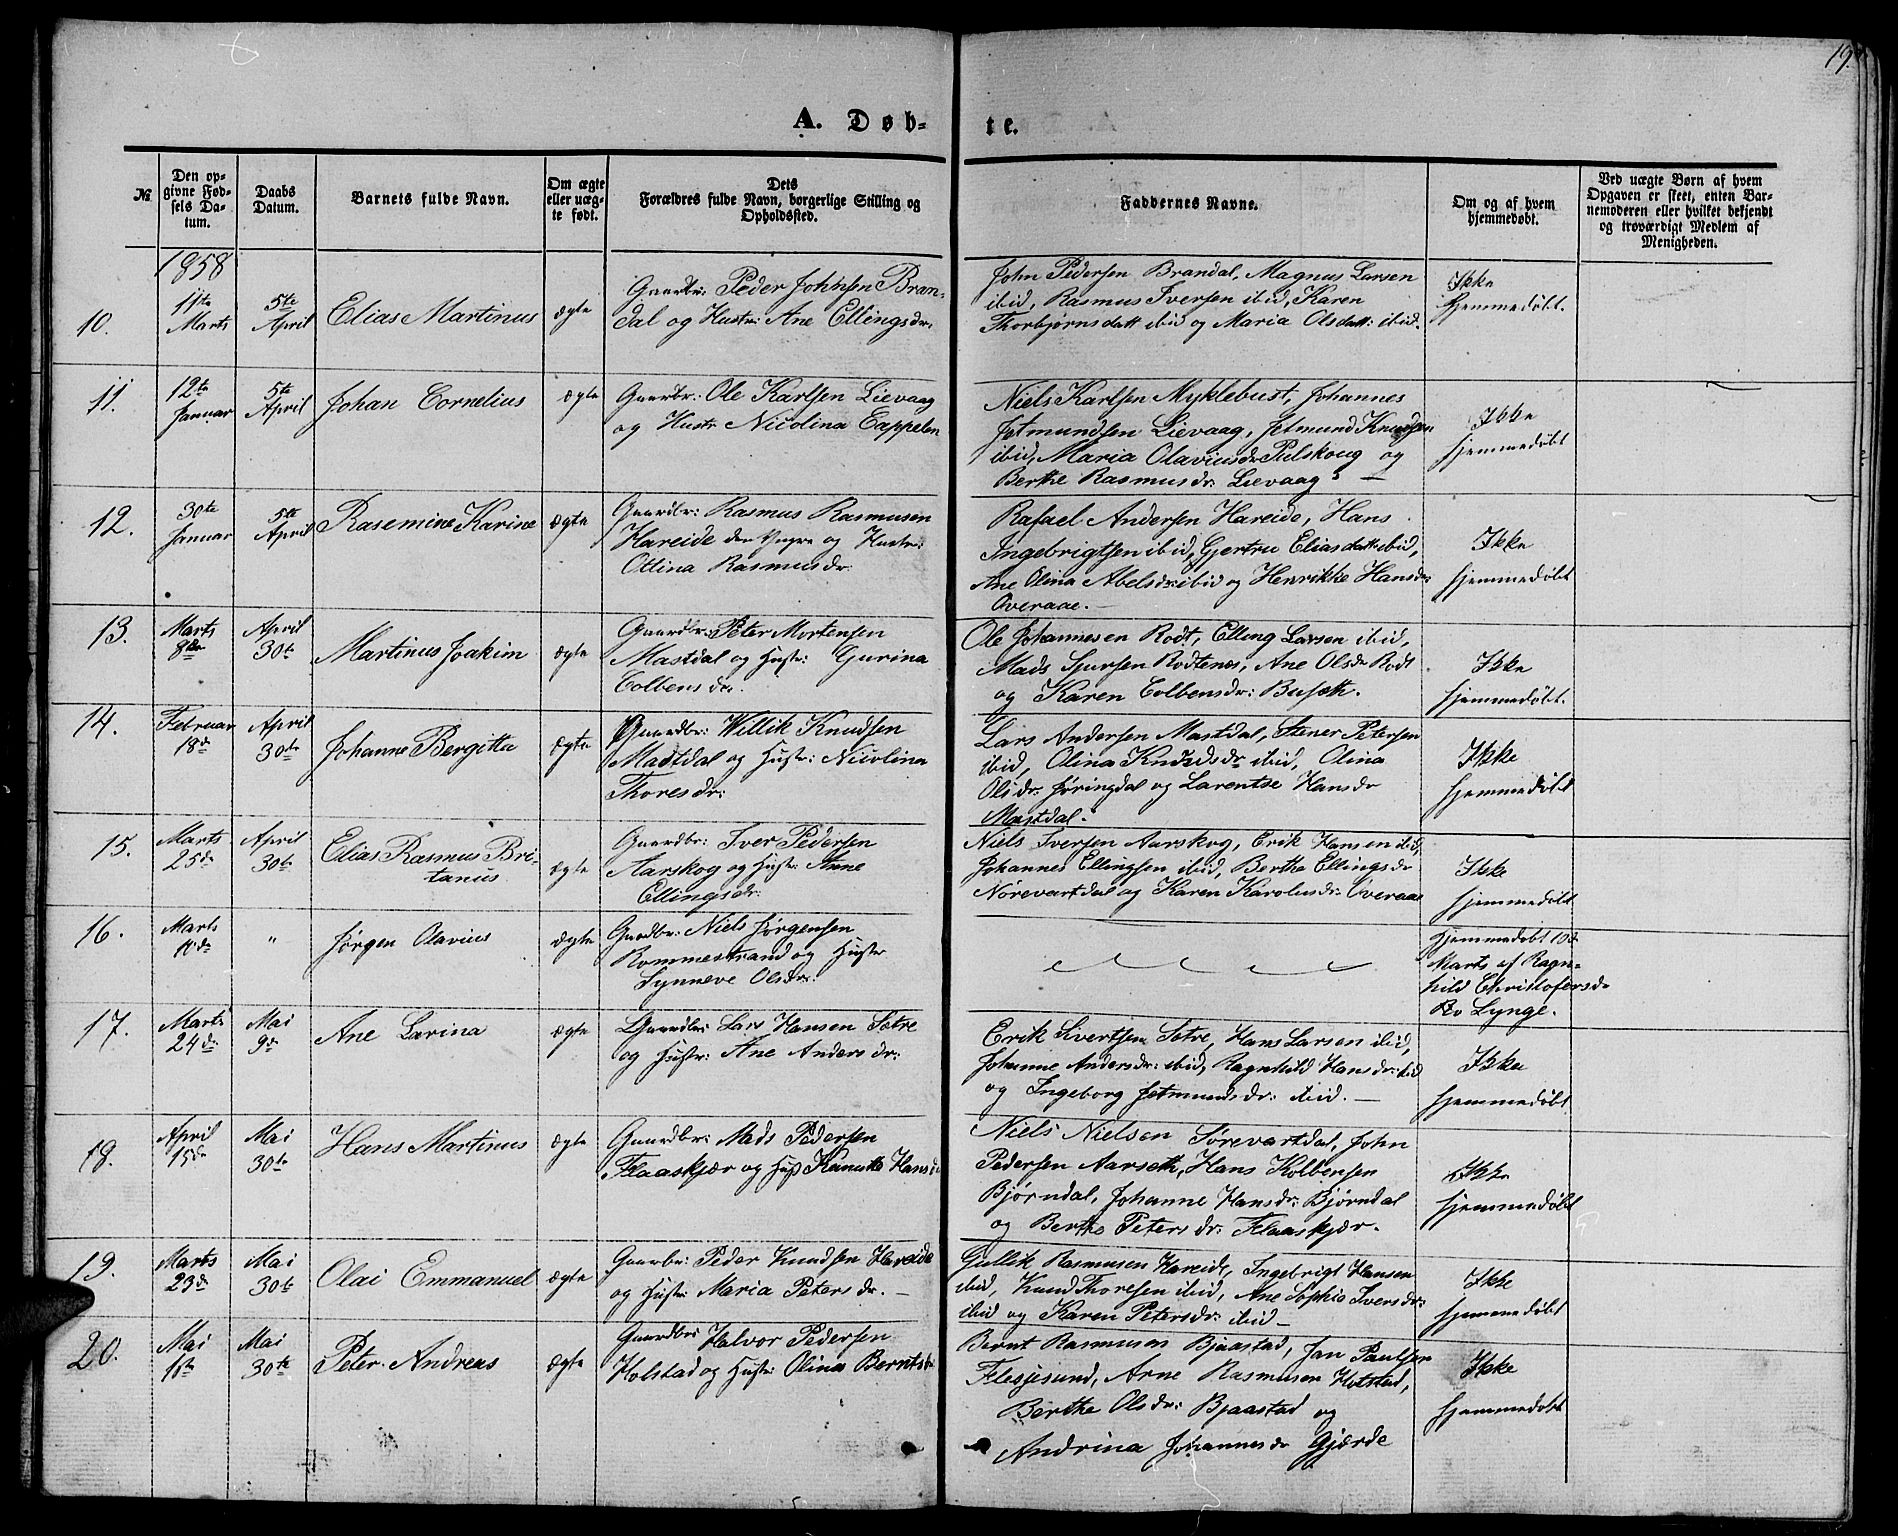 19.
A. Døb-
te.
№
Den op-
givne Fød-
sels Da-
tum.
Daabs
Datum.
Barnets fulde Navn.
Om ægte
eller uæg-
te født.
Dets
Forældres fulde Navn, borgerlige Stilling og
Opholdssted.
Faddernes Navne.
Om og af hvem
hjemmedøbt.
Ved uægte Børn af hvem
Opgaven er skeet, enten Bar-
nemoderen eller hvilket bekjendt
og troværdigt Medlem af
Menigheden.
1858
10.
11te
Marts
5te
April
Elias Martinus
ægte
Gaardbr: Peder Johnsen Bran-
dal og Hustr: Ane Ellingsdr:
John Pedersen Brandal, Magnus Larsen
ibid, Rasmus Iversen ibid, Karen
Thorbjørnsdatt ibid og Maria Olsdatt: ibid.
Ikke
Hjemmedøbt.
11.
12te
Januar
5te
April
Johan Cornelius
ægte
Gaardbr: Ole Karlsen Lievaag
og Hustr Nicolina Cappelen
Niels Karlsen Myklebust, Johannes
Jetmundsen Lievaag, Jetmund Knudsen
ibid, Maria Olaviusdr Pilskoug og
Berthe Rasmusdr: Lievaag. —
Ikke
hjemmedøbt
12.
30te
Januar
5te
April
Rasemine Karine
ægte
Gaardbr: Rasmus Rasmusen
Hareide den Yngre og Hustr:
Ottina Rasmusdr:
Rafael Andersen Hareide, Hans
Ingebrigtsen ibid, Gjertru Eliasdatt: ibid,
Ane Olina Abelsdr: ibid og Henrikke Hansdr
Overaae. —
Ikke
hjemmedøbt
13.
Marts
8de
April
30te
Martinus Joakim
ægte
Gaardbr: Peter Mortensen
Mastdal og Hustr: Gurina
Colbensdr.
Ole Johannesen Rodt, Elling Larsen ibid,
Mads Sjursen Rodtenes, Ane Olsdr Rodt
og Karen Colbensdr: Buseth.
Ikke
hjemmedøbt.
14.
Februar
18de
April
30te
Johanne Bergitta
ægte
Gaardbr: Willik Knudsen
Mastdal og Hustr: Nicolina
Thoresdr:
Lars Andersen Mastdal, Stener Petersen
ibid, Olina Knudsdr ibid, Olina
Olsdr: Jøringdal og Larentse Hansdr
Mastdal.
Ikke
hjemmedøbt
15.
Marts
25de
April
30te
Elias Rasmus Bri-
tanius
ægte
Gaardbr: Iver Pedersen
Aarskog og Hustr: Anne
Ellingsdr:
Niels Iversen Aarskog, Erik Hansen ibid,
Johannes Ellingsen ibid, Berthe Ellingsdr
Nørevartdal og Karen Karolusdr: Overaae
Ikke
hjemmedøbt
16.
Marts
10de
"
Jørgen Olavius
ægte
Gaardbr: Niels Jørgensen
Rommestrand og Hustr
Synneve Olsdr:
Hjemmedøbt 10de
Marts af Ragn-
hild Christofersdr
Bø Lynge.
17.
Marts
24de
Mai
9de
Ane Larina
ægte
Gaardbr: Lars Hansen Sætre
og Hustr: Ane Andersdr:
Erik Sivertsen Sætre, Hans Larsen ibid,
Johanne Andersdr: ibid, Ragnhild Hansdr: ibid
og Ingeborg Jetmundsdr: ibid. —
Ikke
hjemmedøbt.
18.
April
15de
Mai
30te
Hans Martinus
ægte
Gaardbr: Mads Pedersen
Flaaskjær og Hustr Hansdr
Niels Nielsen Sørevartdal, John
Pedersen Aarseth, Hans Kolbensen
Bjørndal, Johanne Hansdr: Bjørndal
og Berthe Petersdr: Flaaskjær.
Ikke
hjemmedøbt
19.
Marts
23de
Mai
30te
Olai Emmanuel
ægte
Gaardbr: Peder Knudsen Hareide
og Hustr: Maria Petersdr. —
Gullik Rasmusen Hareide, Ingebrigt Hansen
ibid, Knud Thoresen ibid, Ane Sophie Iversdr:
ibid og Karen Petersdr: ibid —
Ikke
hjemmedøbt
20.
Mai
1ste
Mai
30te
Peter Andreas
ægte
Gaardbr Halvor Pedersen
Holstad og Hustr: Olina Berntsdr
Bernt Rasmusen Bjaastad, Jan Paulsen
Flesjesund, Arne Rasmusen Holstad,
Berthe Olsdr: Bjaastad og
Andrina Johannesdr Gjærde
Ikke
hjemmedøbt